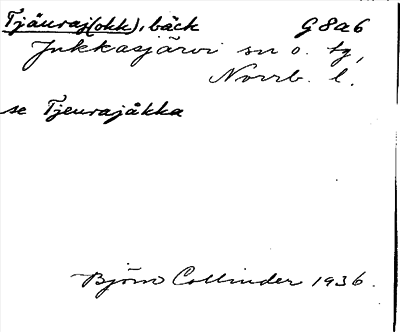 Tjäuraj(okk), bäck G8a6
Jukkasjärvi sn o. tg,
Norrb. l.
se Tjeurajåkka
Björn Collinder 1936.